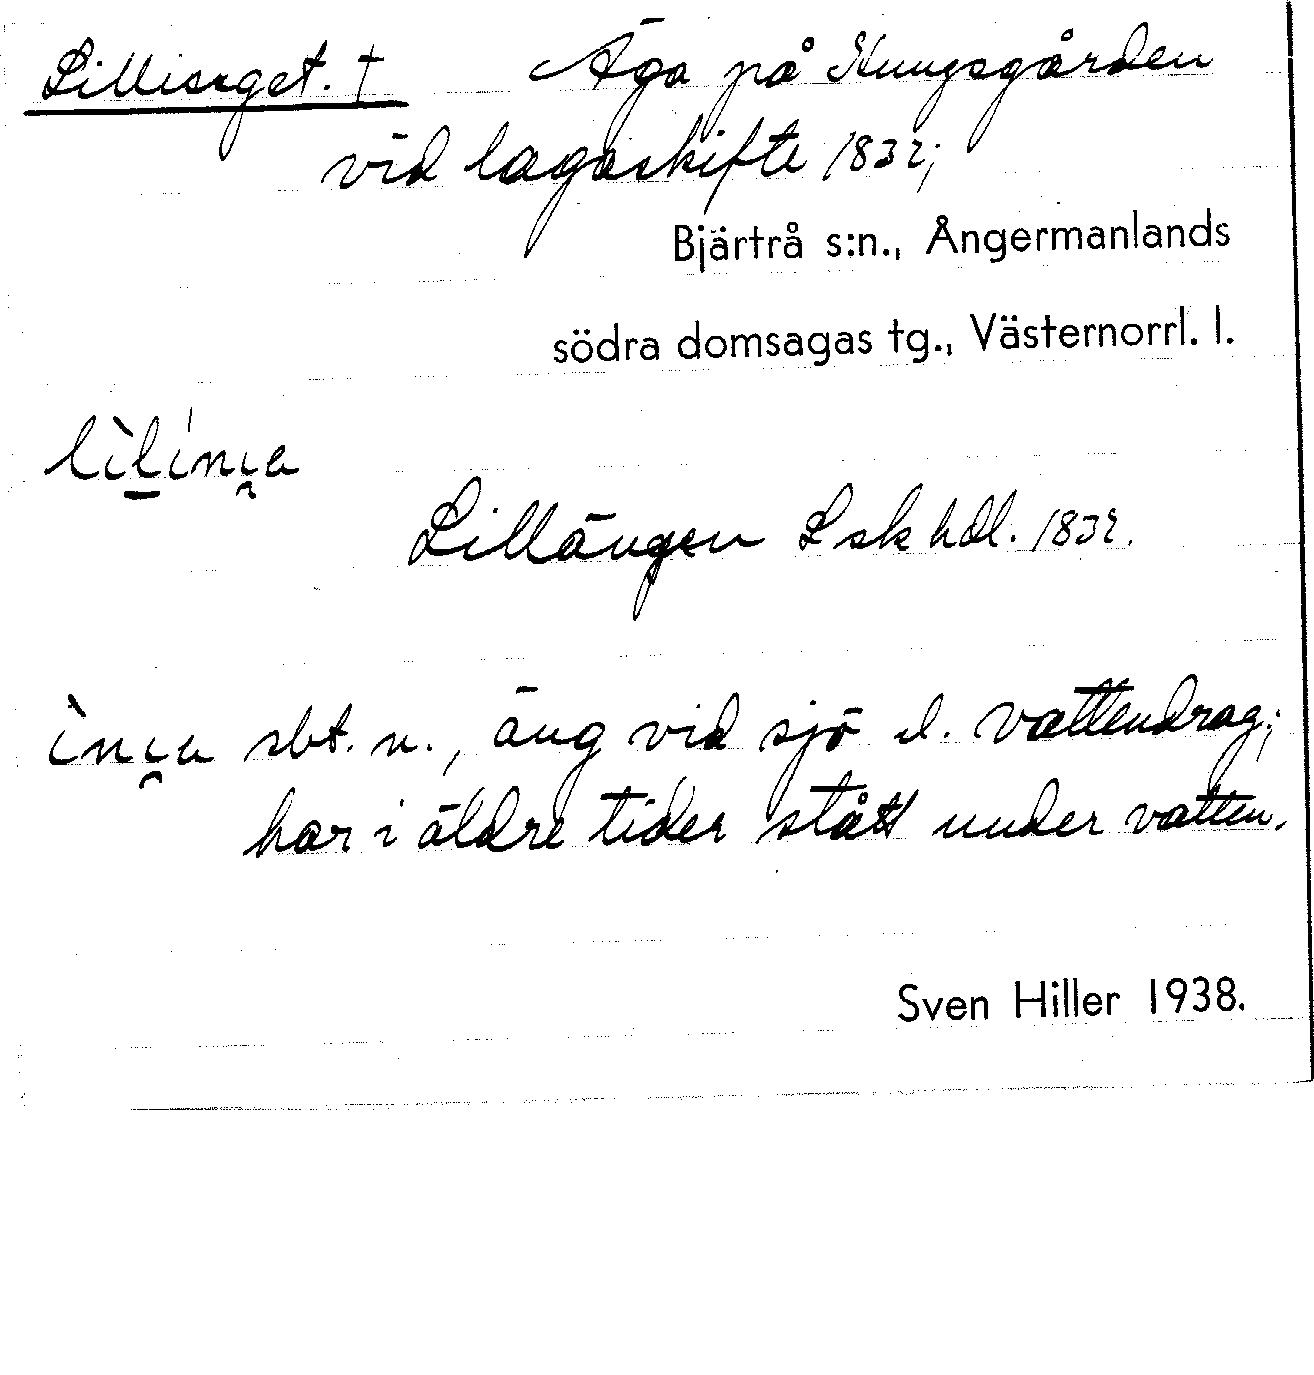 Lillisæget. † Äga på Kungsgården
vid lagaskifte 1832;
Bjärtrå s:n., Ångermanlands
södra domsagas tg., Västernorrl. l.
Lillängen Lsk hdl. 1832.
sbt. n., äng vid sjö el. vattendrag;
har i äldre tider stått under vatten.
Sven Hiller 1938.